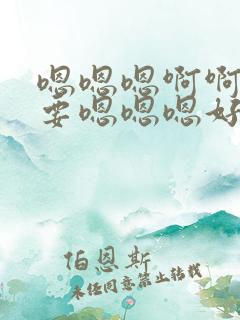 嗯嗯嗯啊啊
要嗯嗯嗯好
伯恩斯
未经同意禁止转载